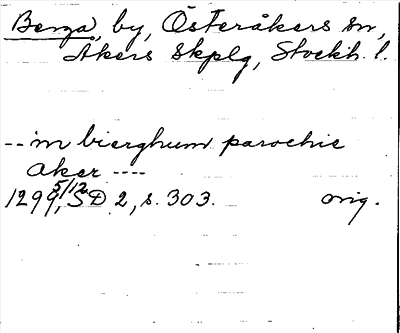 Berga, by, Österåkers sn,
Åkers skplg, Stockh. l.
-- in bierghum parochie
aker ----
1299 5/12, SD 2, s. 303. orig.